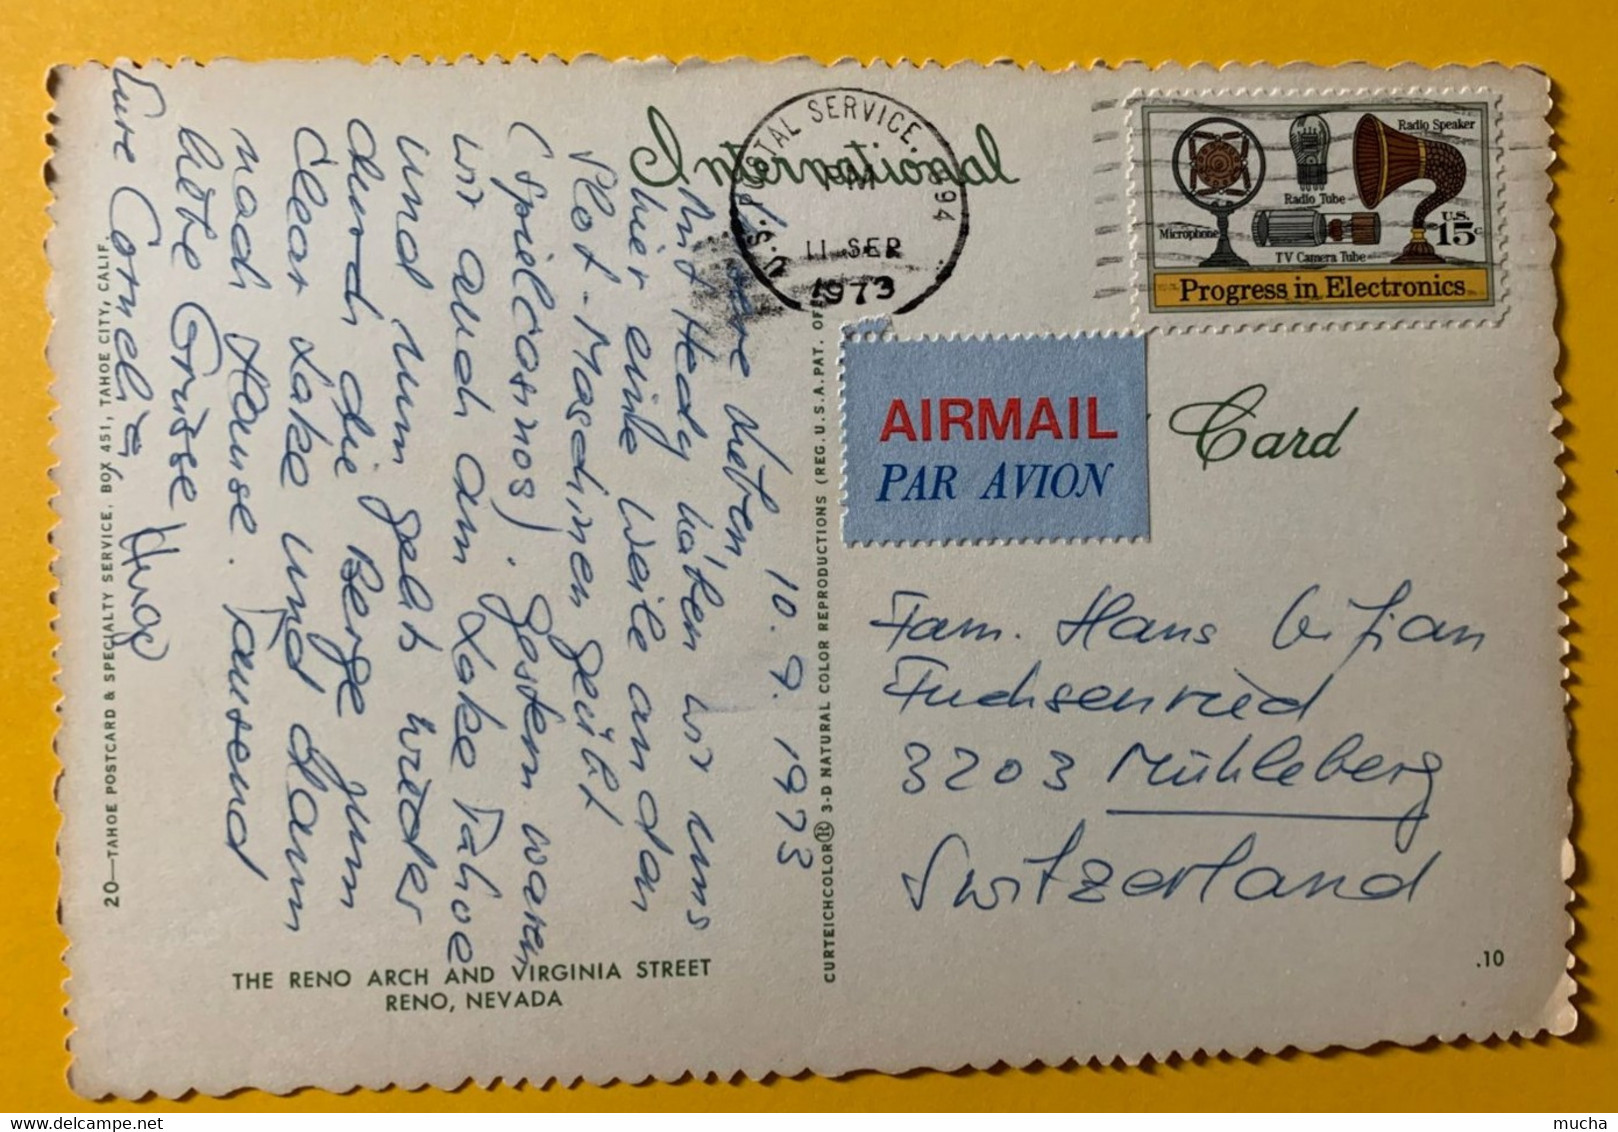 International
Card
U.S. POSTAL SERVICE. 94
PM
11 SEP
1973
Radio Speaker
Radio Tube
Microphone
TV Camera Tube
U.S.
15c
Progress in Electronics
AIRMAIL
PAR AVION
10. 9. 1973
Lieben,
Mit Hedy haben wir uns
hier eine Weile an den
Slot-Maschinen geübt
(Spielcasinos). Gestern waren
wir auch am Lake Tahoe
und nun geht's wieder
durch die Berge zum
Clear Lake und dann
nach Hause. Tausend
liebe Grüsse
Eure Cornelia Hugo
Fam. Hans
Fuchsenried
3203 Mühleberg
Switzerland
20—TAHOE POSTCARD & SPECIALTY SERVICE, BOX 451, TAHOE CITY, CALIF.
CURTEICHCOLOR® 3-D NATURAL COLOR REPRODUCTIONS (REG. U.S.A. PAT. OF
THE RENO ARCH AND VIRGINIA STREET
RENO, NEVADA
.10
mucha